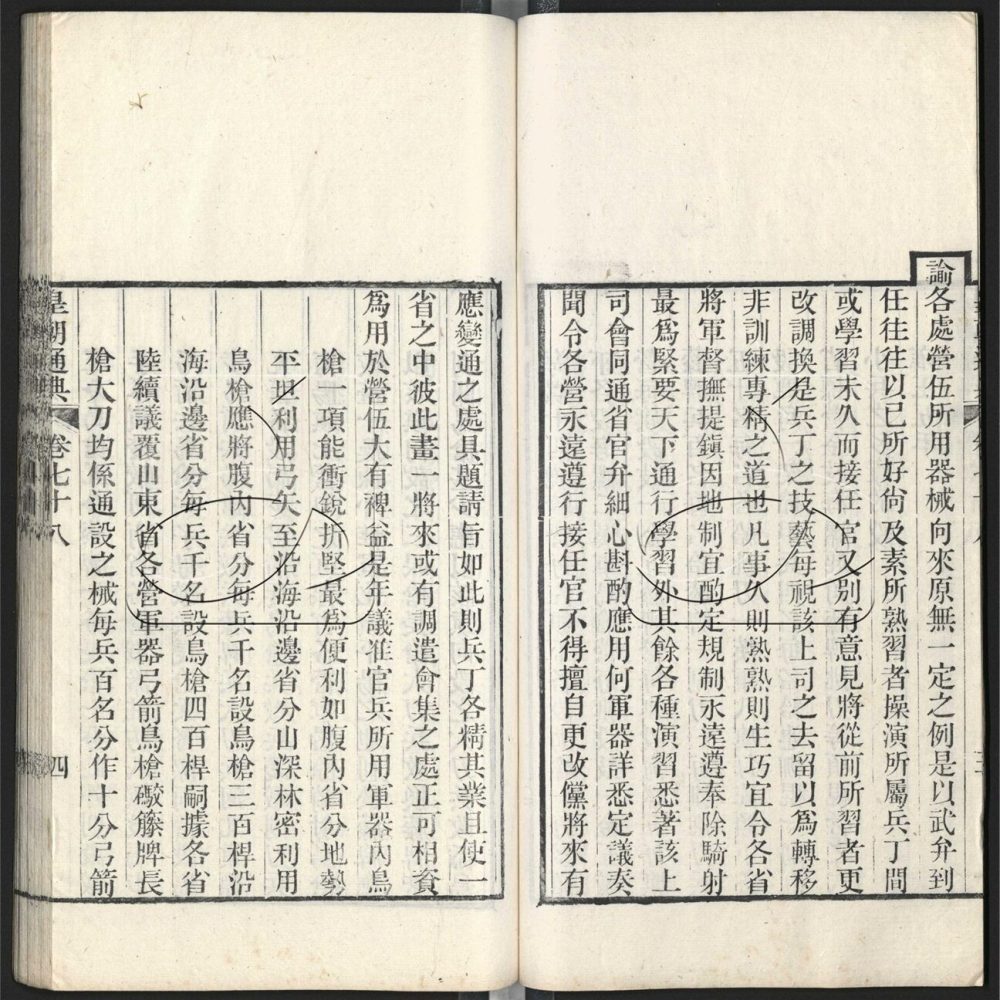 諭各處營伍所用器械向來原無一定之例是以武弁到
任往往以己所好尙及素所熟習者操演所屬兵丁間
或學習未久而接任官又別有意見將從前所習者更
改調換是兵丁之技藝每視該上司之去留以爲轉移
非訓練專精之道也凡事久則熟熟則生巧宜令各省
將軍督撫提鎭因地制宜酌定規制永遠遵奉除騎射
最爲緊要天下通行學習外其餘各種演習悉著該上
司會同通省官弁細心斟酌應用何軍器詳悉定議奏
聞令各營永遠遵行接任官不得擅自更改儻將來有
應變通之處具題請旨如此則兵丁各精其業且使一
省之中彼此畫一將來或有調遣會集之處正可相資
爲用於營伍大有裨益是年議准官兵所用軍器內鳥
槍一項能衝銳折堅最爲便利如腹內省分地勢
平坦利用弓矢至沿海沿邊省分山深林密利用
鳥槍應將腹內省分每兵千名設鳥槍三百桿沿
海沿邊省分每兵千名設鳥槍四百桿嗣據各省
陸續議覆山東省各營軍器弓箭鳥槍礮籐牌長
槍大刀均係通設之械每兵百名分作十分弓箭
皇朝通典 卷七十八 四